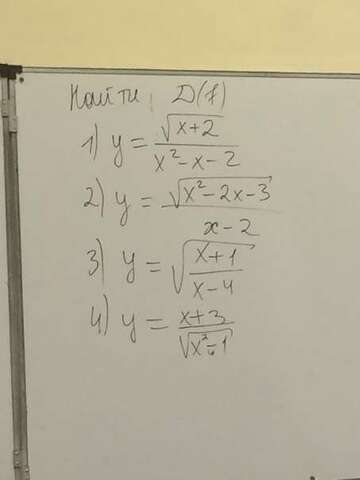 Найти D(f)
1) y = √(x+2) / (x² - x - 2)
2) y = √(x² - 2x - 3) / (x - 2)
3) y = √((x+1) / (x-4))
4) y = (x+3) / √(x² - 1)